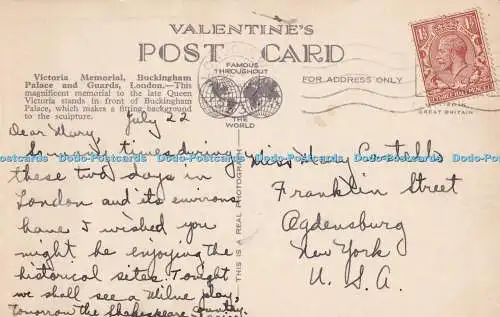 VALENTINE'S
POST CARD
Victoria Memorial, Buckingham
Palace and Guards, London.—This
magnificent memorial to the late Queen
Victoria stands in front of Buckingham
Palace, which makes a fitting background
to the sculpture.
FAMOUS
THROUGHOUT
THE WORLD
FOR ADDRESS ONLY
GREAT BRITAIN
THIS IS A REAL PHOTOGRAPH
July 22
Dear Mary
So many times during
these two days in
London and its environs
have I wished you
might be enjoying the
historical sites. Tonight
we shall see a Milne play,
tomorrow the Shakespeare Country.
Miss Mary Costello
Franklin Street
Ogdensburg
New York
U. S. A.
Dodo-Postcards Dodo-Postcards Dodo-Postcards Dodo-Postcards Dodo-Postcards Dodo-Postcards